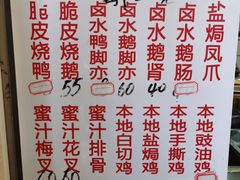 脆皮烧鸭
脆皮烧鹅
55
卤水鸭脚亦
卤水鹅脚亦
60
卤水鹅肾
40
卤水鹅肠
盐焗凤爪
蜜汁梅叉
蜜汁花叉
蜜汁排骨
本地白切鸡
本地盐焗鸡
本地手撕鸡
本地豉油鸡